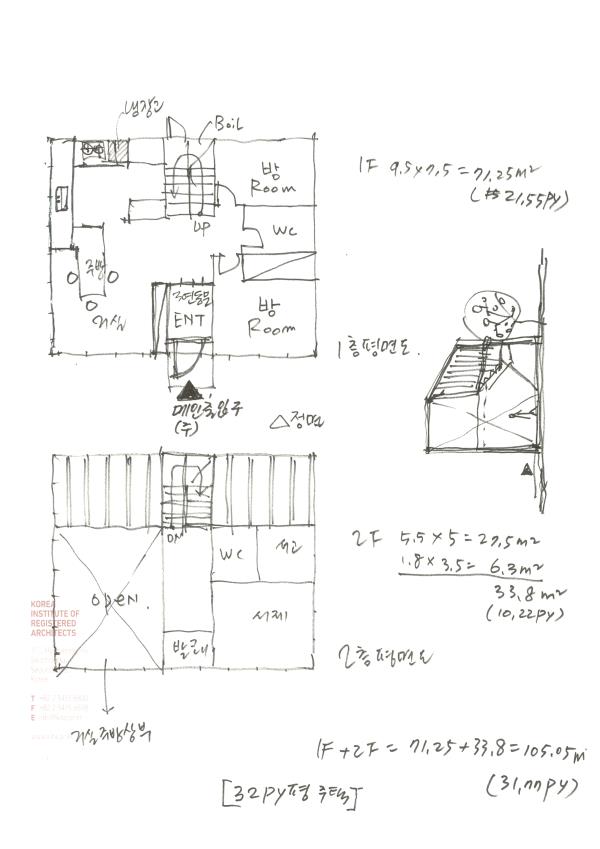 냉장고
Boil
방
Room
UP
WC
주방
거실
ENT
방
Room
메인출입구
(주)
△정면
1F 9.5×7.5 = 71.25m²
(21.55py)
1층평면도.
DN
WC
서고
OPEN.
서재
발코니
거실주방상부
2F 5.5×5 = 27.5m²
1.8×3.5 = 6.3m²
33.8m²
(10.22py)
2층평면도
KOREA
INSTITUTE OF
REGISTERED
ARCHITECTS
T
F
E
1F+2F = 71.25+33.8=105.05m²
(31.77py)
[32py평 주택]